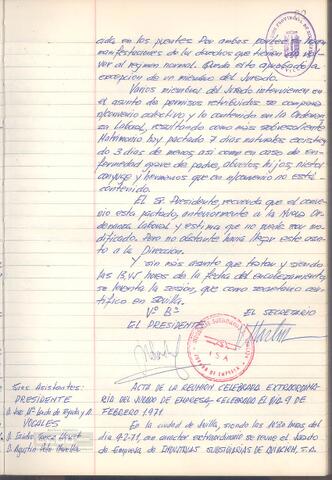 cada en los puentes. Por ambas partes se hacen
manifestaciones de los derechos que tienen de vol-
ver al regimen normal. Queda ello aprobado a
excepcion de un miembro del Jurado.
Varios miembros del Jurado intervienen en
el asunto de permisos retribuidos se compara
n/convenio colectivo y lo contenido en la Ordenan-
za Laboral, resultando como más sobresaliente
Matrimonio hoy pactado 7 dias naturales
3 dias de menos, asi como en caso de En-
fermedad grave de padres, abuelos, hijos, nietos,
conyuge y hermanos que en n/convenio no está
contenido.
El Sr. Presidente, recuerda que el conve-
nio esta pactado, anteriormente a la nueva Or-
denanza Laboral y estima que no puede ser mo-
dificado. Pero no obstante hará llegar este asun-
to a la Dirección.
Y sin más asunto que tratar y siendo
las 13,45 horas de la fecha del encabezamiento,
se levanta la sesión, que como secretario cer-
tifico en Sevilla.
Vº Bº
EL SECRETARIO
EL PRESIDENTE
I S A
JURADO DE EMPRESA
Sres. Asistentes:
PRESIDENTE
VOCALES
ACTA DE LA REUNION CELEBRADA EXTRAORDINA-
RIA DEL JURADO DE EMPRESA, CELEBRADA EL DIA 9 DE
FEBRERO 1971.
En la ciudad de Sevilla, siendo las horas del
dia 9-2-71, con caracter extraordinario se reune el Jurado
de Empresa de INDUSTRIAS SUBSIDIARIAS DE AVIACION, S.A.